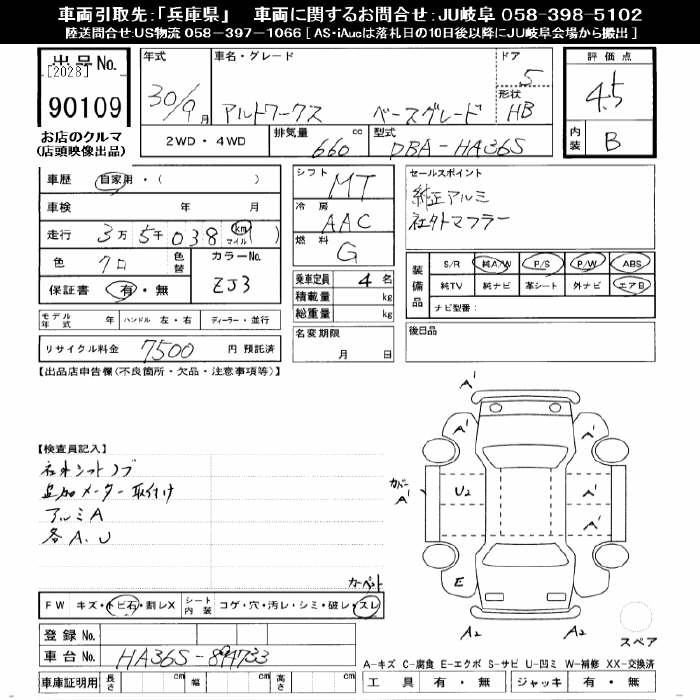 車両引取先:「兵庫県」 車両に関するお問合せ:JU岐阜 058-398-5102
陸送問合せ:US物流 058-397-1066 [ AS・iAucは落札日の10日後以降にJU岐阜会場から搬出 ]
出品No.
[2028]
90109
お店のクルマ
(店頭映像出品)
年式
30/9月
車名・グレード
アルトワークス ベースグレード
ドア
5
形状
HB
2WD・4WD
排気量
660 cc
型式
DBA-HA36S
評価点
4.5
内装
B
車歴
自家用・( )
車検 年 月
走行 3万5千038 km マイル )
色 クロ
色替
カラーNo.
ZJ3
保証書 有・無
モデル年式 年 ハンドル 左・右 ディーラー・並行
リサイクル料金 7500 円 預託済
シフト
MT
冷房
AAC
燃料
G
乗車定員 4 名
積載量 kg
総重量 kg
名変期限
月 日
セールスポイント
純正アルミ
社外マフラー
装備品
S/R 純A/W P/S P/W ABS
純TV 純ナビ 革シート 外ナビ エアB
ナビ型番:
後日品
【出品店申告欄(不良箇所・欠品・注意事項等)】
【検査員記入】
社外シフトノブ
追加メーター取付け
アルミA
各A.U
カーペット
FW キズ・トビ石・割レX シート内装 コゲ・穴・汚レ・シミ・破レ・スレ
登録No.
車台No. HA36S-
車庫証明用 長さ cm 幅 cm 高さ cm
A'
A'
A'
カバー
A'
U2
A'
A'
E
A2
A2
スペア
A-キズ C-腐食 E-エクボ S-サビ U-凹ミ W-補修 XX-交換済
工具 有・無 ジャッキ 有・無